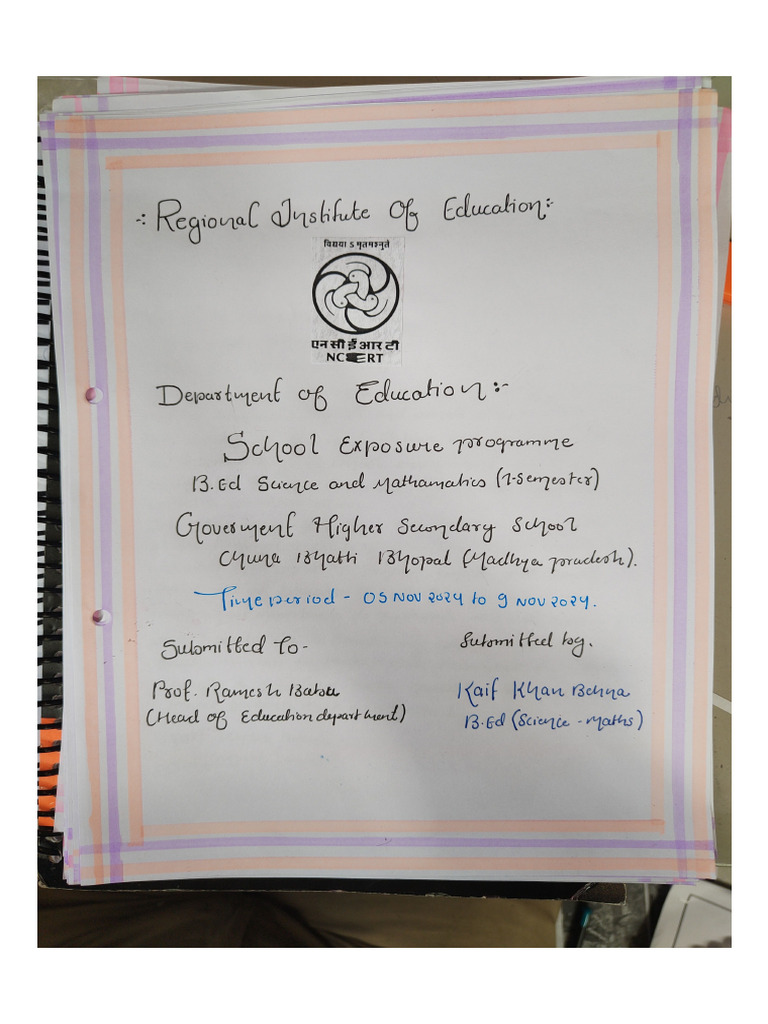 -: Regional Institute Of Education:-
विद्यया ऽ मृतमश्नुते
एन सी ई आर टी
NCERT
Department of Education:-
School Exposure programme
B.Ed Science and Mathamatics (1-Semester)
Goverment Higher Secondary School
Chuna Bhatti Bhopal (Madhya pradesh).
Time period - 05 NOV 2024 to 9 NOV 2024.
Submitted To-
Submitted by.
Prof. Ramesh Babu
Kaif Khan Behna
(Head of Education department)
B.Ed (Science - Maths)